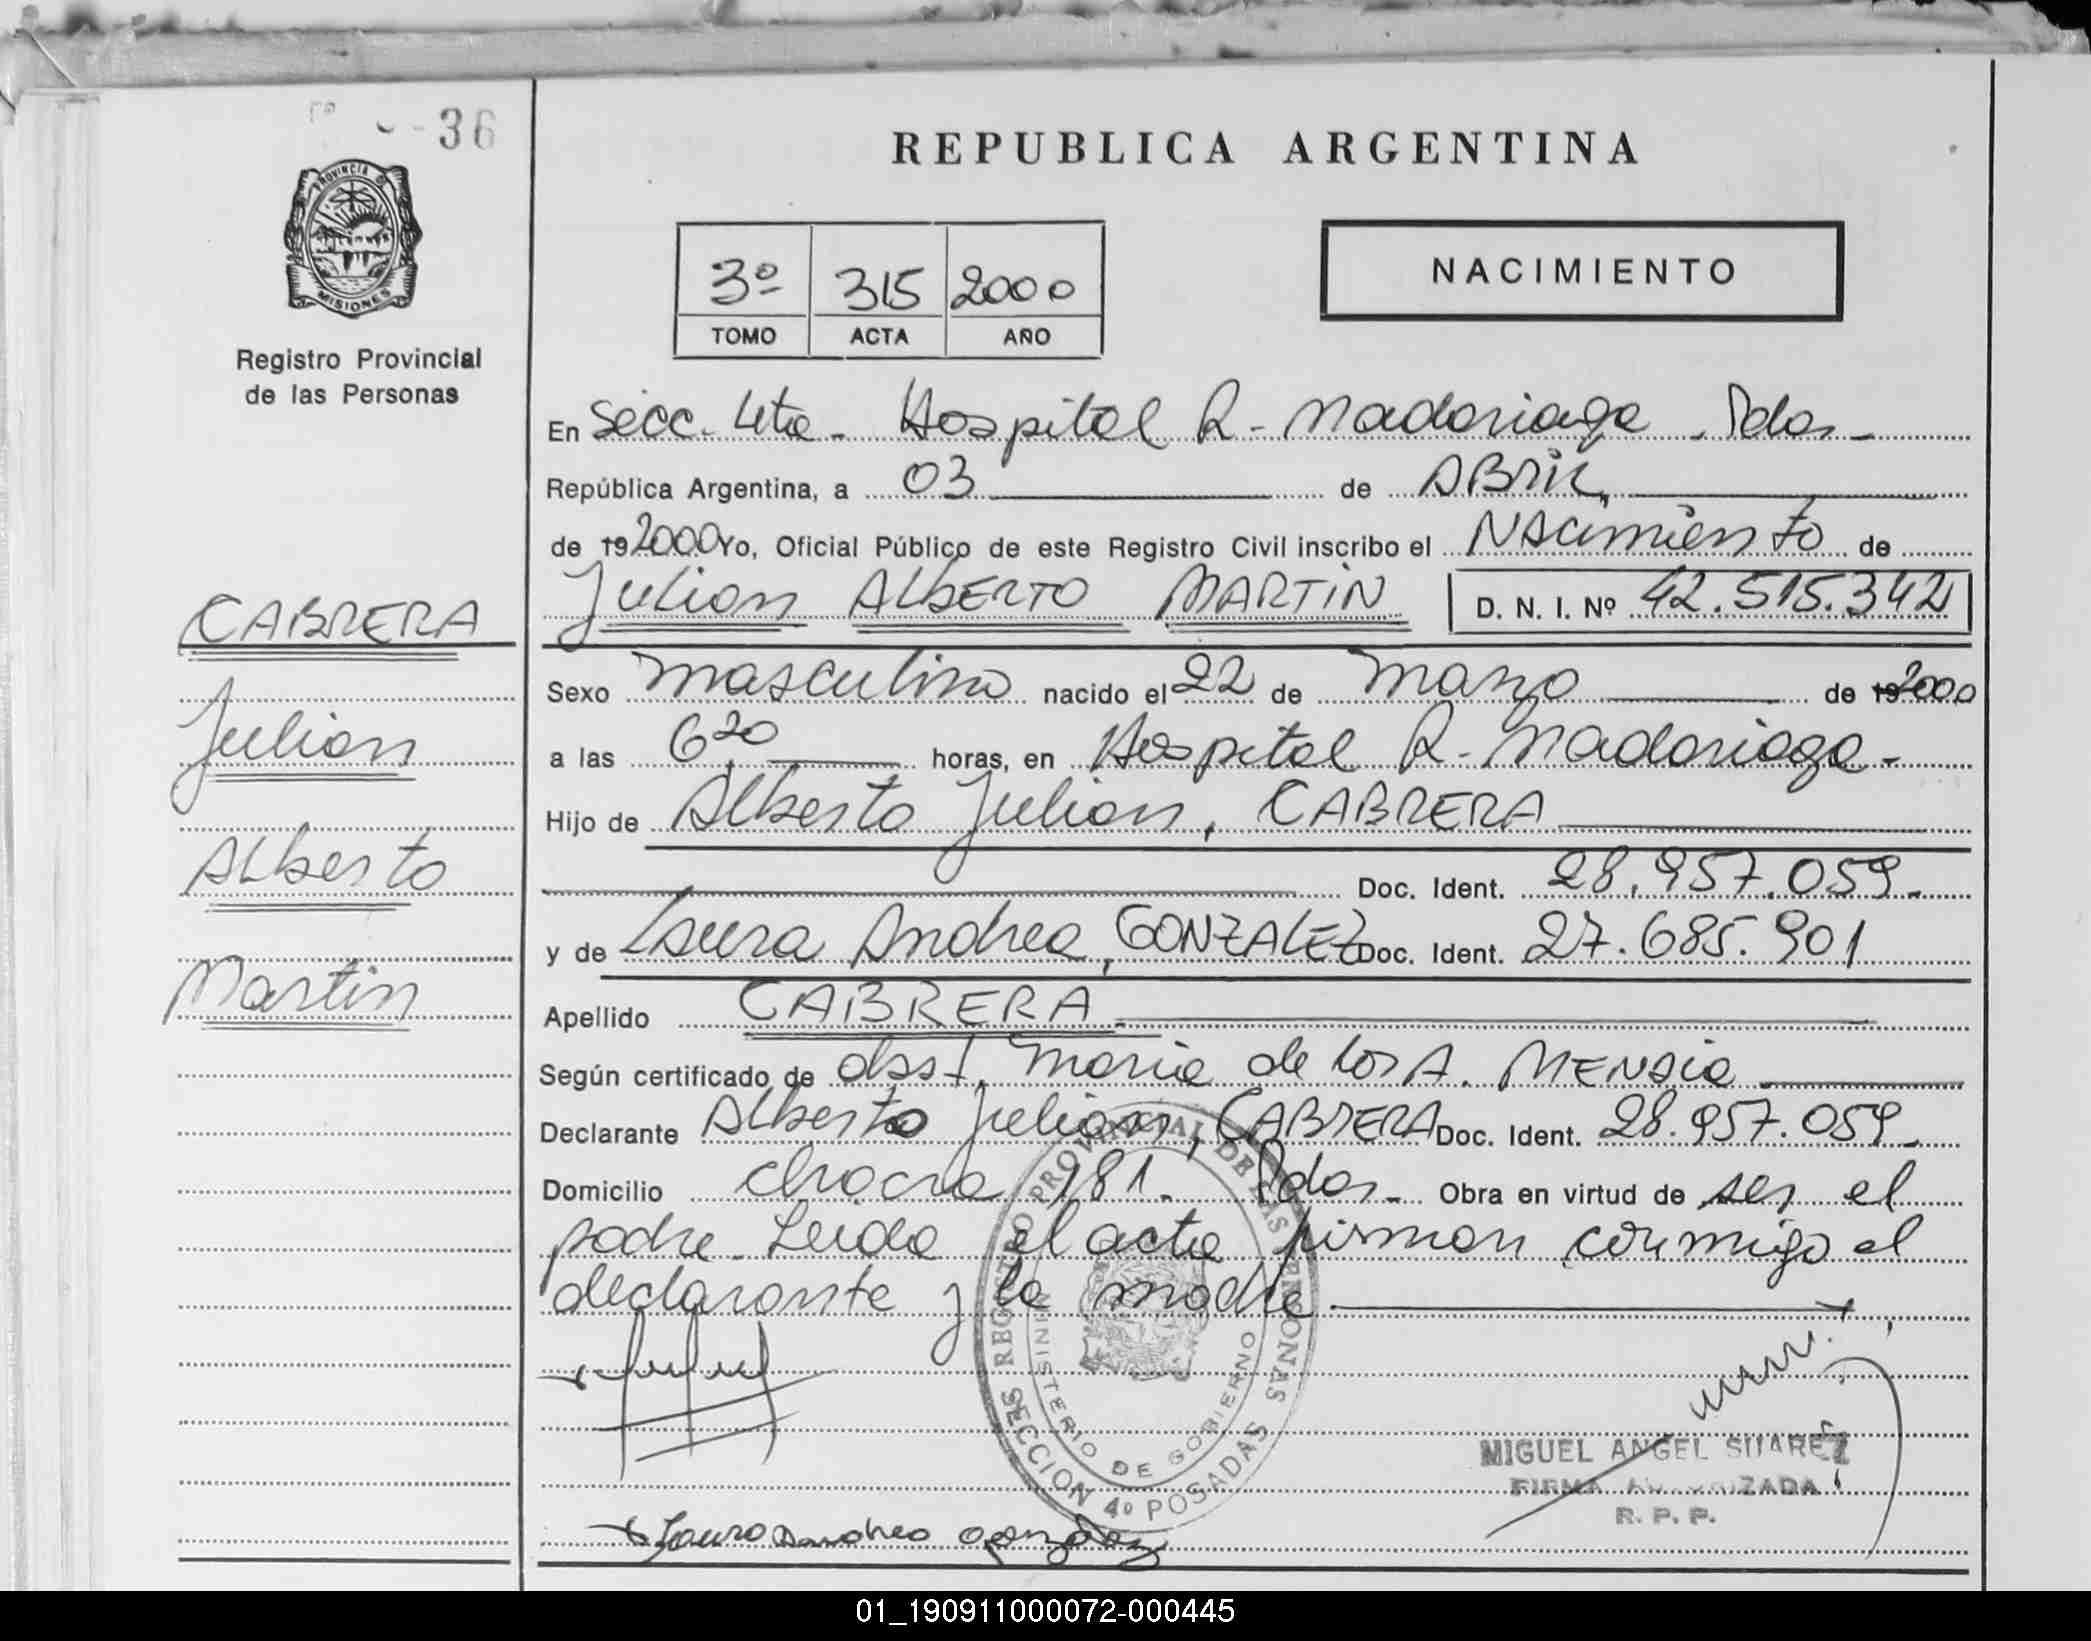 -36
REPUBLICA ARGENTINA
PROVINCIA DE
MISIONES
Registro Provincial
de las Personas
3º 315 2000
TOMO ACTA AÑO
NACIMIENTO
En Secc. 4ta - Hospital R. Madariaga - Pdas -
República Argentina, a 03 de ABRIL
de 19 2000 Yo, Oficial Público de este Registro Civil inscribo el NAcimiento de
Julian ALbERTO MARTIN D. N. I. Nº 42.515.342
CABRERA
Sexo masculino nacido el 22 de Marzo de 19 2000
Julian
a las 6 20 horas, en Hospital R. Madariaga -
Hijo de Alberto Julian, CABRERA
Alberto
Doc. Ident. 28.957.059.
y de Laura Andrea, GONZALEZ Doc. Ident. 27.685.901
Martin
Apellido CABRERA
Según certificado de obst. Maria de los A. MENDIA
Declarante Alberto Julian, CABRERA Doc. Ident. 28.957.059.
Domicilio chacra 181. Pdas - Obra en virtud de ser el
padre. Leida el acta firman conmigo el
declarante y la madre
REGISTRO PROVINCIAL DE LAS PERSONAS
MINISTERIO DE GOBIERNO
SECCION 4º POSADAS
MIGUEL ANGEL SUAREZ
FIRMA AUTORIZADA
R. P. P.
Laura Andrea Gonzalez
01_190911000072-000445